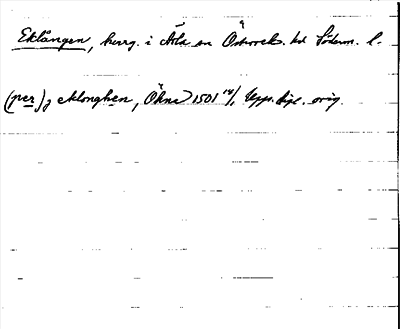 Eklången, herrg. i Ärla sn Österrek. hd Söderm. l.
(per), eklonghen, Ökna 1501 14/1 Upps. dipl. orig.